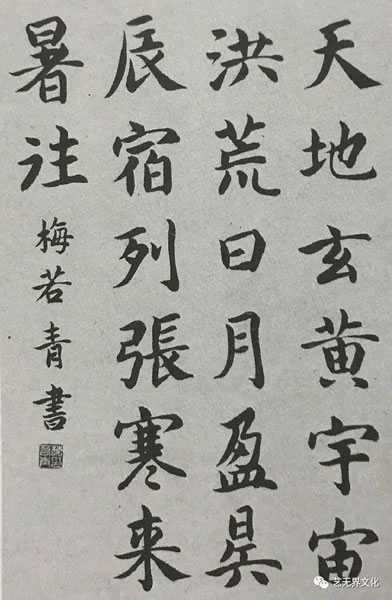 天地玄黄宇宙
洪荒日月盈昃
辰宿列張寒来
暑往
梅若青書
艺无界文化